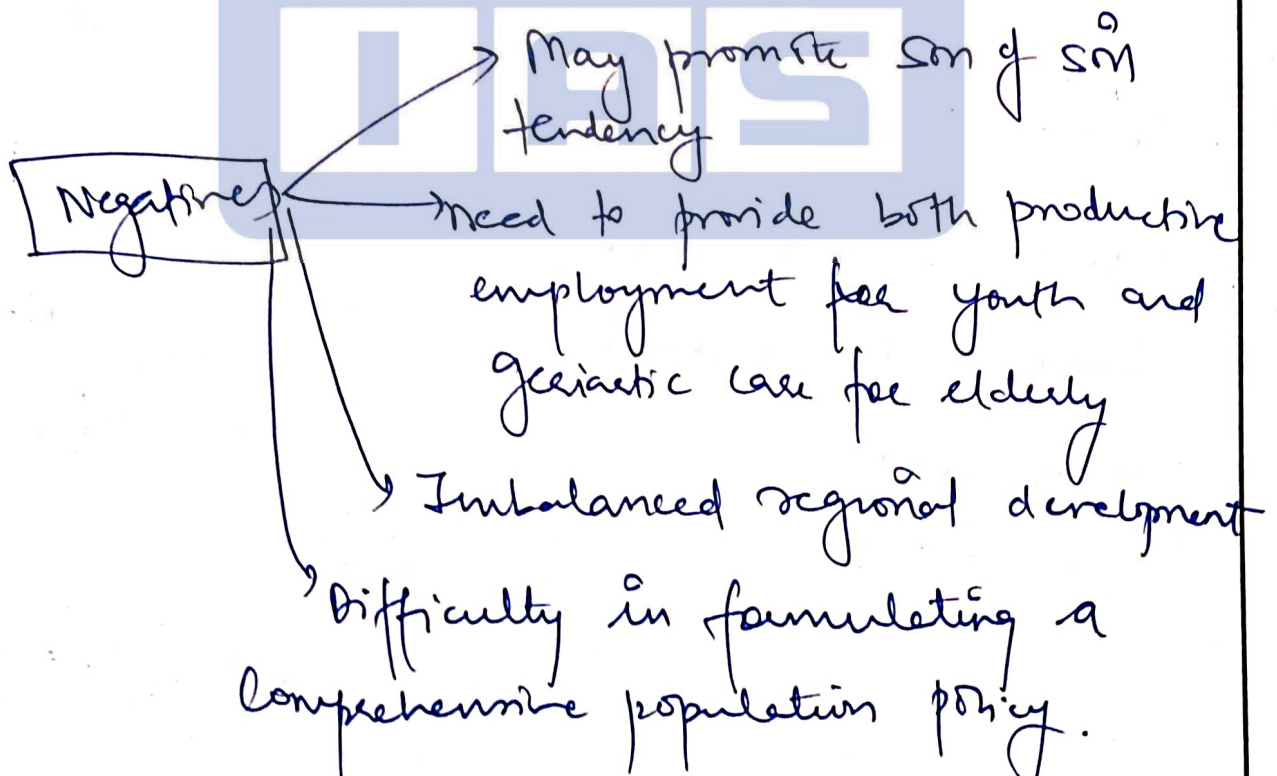 IAS
May promote son of soil
tendency
Negatives
need to provide both productive
employment for youth and
geriatric care for elderly
Imbalanced regional development
Difficulty in formulating a
Comprehensive population policy.